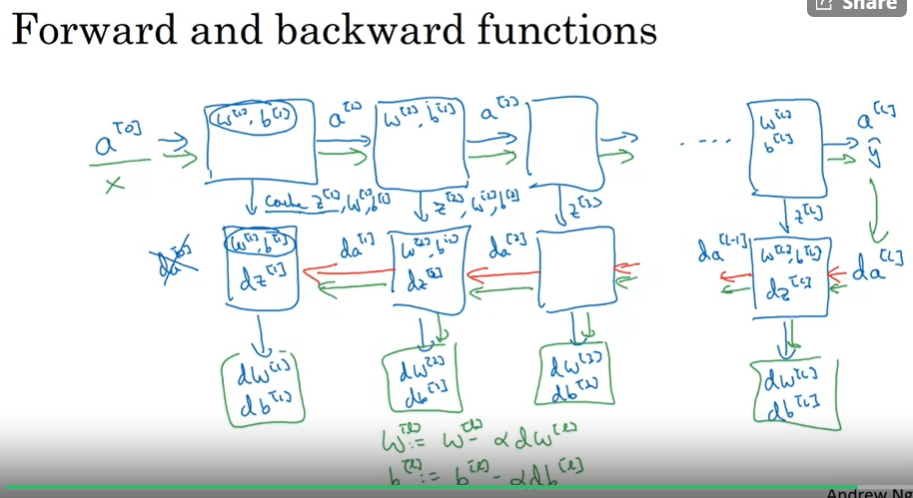 Share
Forward and backward functions
a^[0] w^[1], b^[1] a^[1] w^[2], b^[2] a^[2] .... w^[L] a^[L]
x b^[L] ŷ
cache z^[1], w^[1], b^[1] z^[2], w^[2], b^[2] z^[3] z^[L]
da^[0] w^[1], b^[1] da^[1] w^[2], b^[2] da^[2] da^[L-1] w^[L], b^[L] da^[L]
dz^[1] dz^[2] dz^[L]
dw^[1] dw^[2] dw^[3] dw^[L]
db^[1] db^[2] db^[3] db^[L]
w^[l] := w^[l] - α dw^[l]
b^[l] := b^[l] - α db^[l]
Andrew Ng